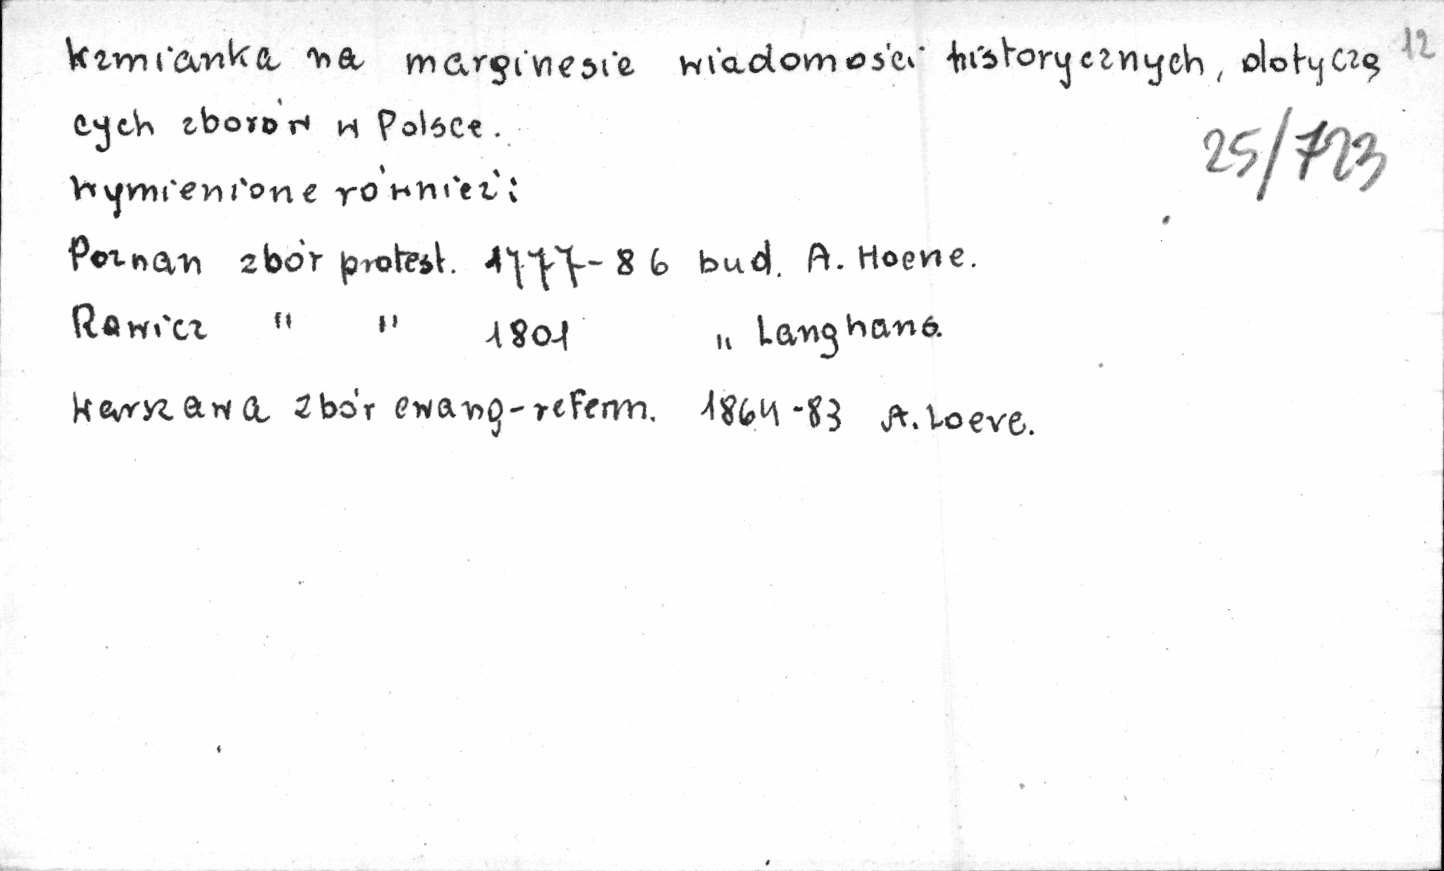 Wzmianka na marginesie wiadomości historycznych, dotyczą 12
cych zborów w Polsce.
25/723
Wymienione również:
Poznan zbór protest. 1777-86 bud. A. Hoene.
Rawicz " " 1801 " Langhans.
Warszawa zbór ewang-reform. 1864-83 A. Loeve.